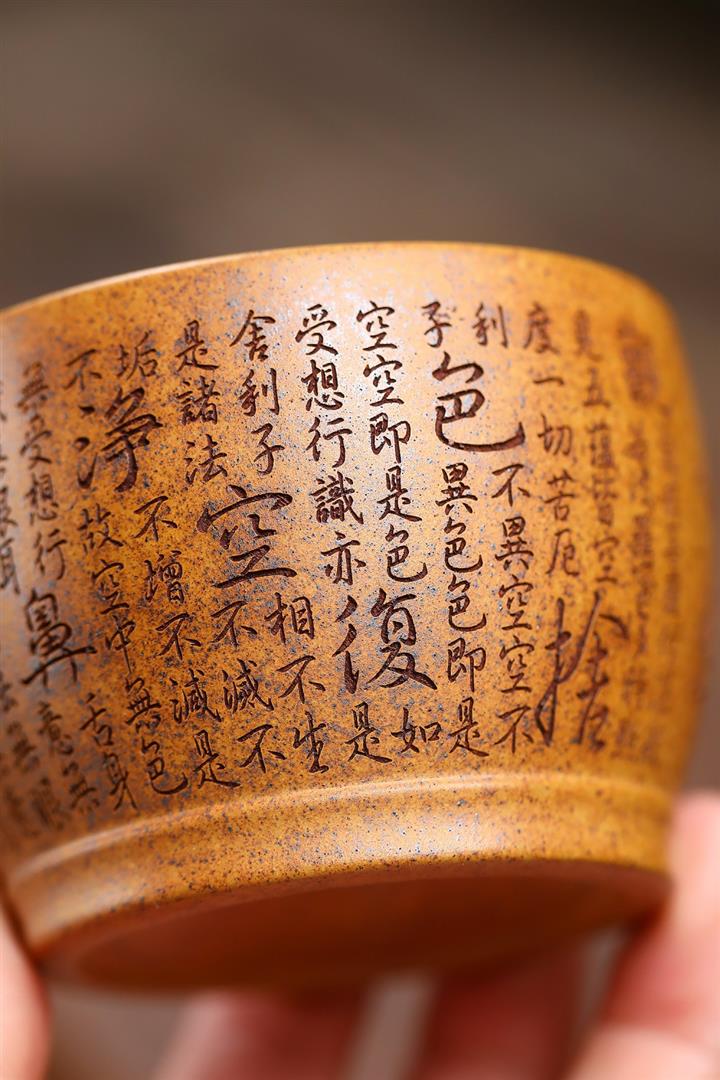 見五蘊皆空
度一切苦厄捨
利不異空空不
子色異色色即是
空空即是色如
受想行識亦復是
舍利子相不生
是諸法空不減不
垢不增不減是
不淨故空中無色
無受想行鼻舌身
耳意無